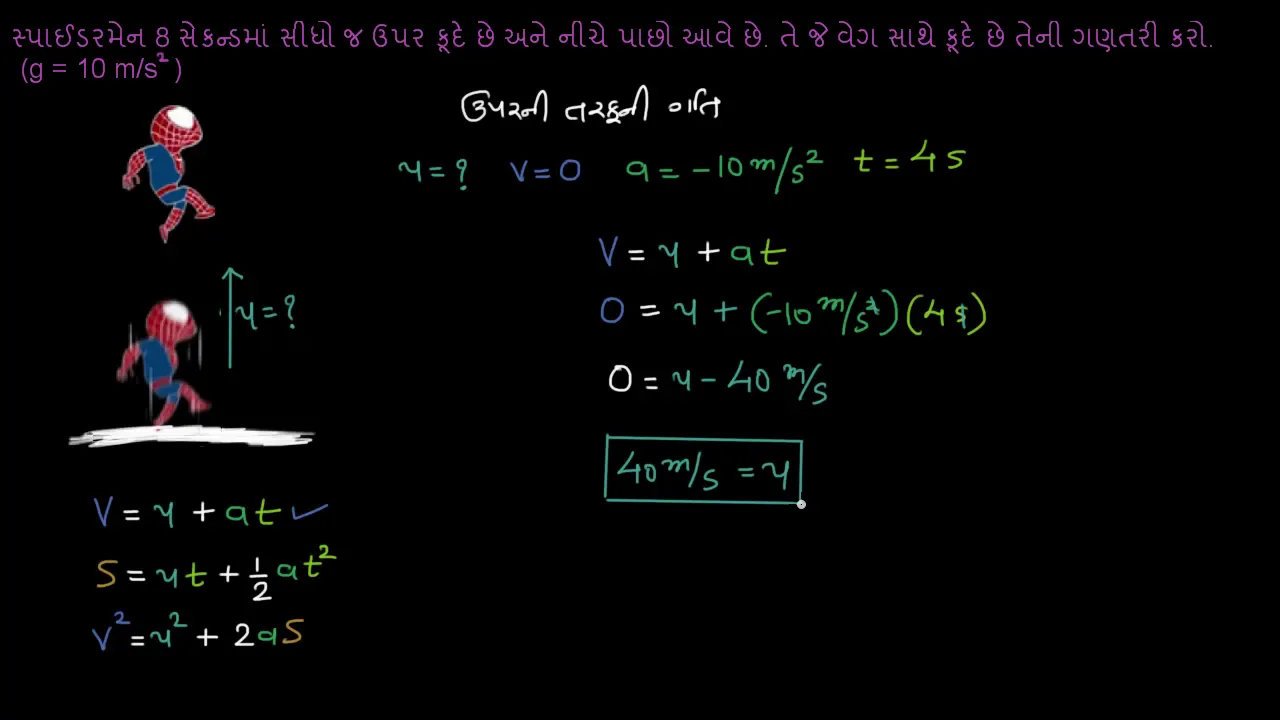 સ્પાઈડરમેન 8 સેકન્ડમાં સીધો જ ઉપર કૂદે છે અને નીચે પાછો આવે છે. તે જે વેગ સાથે કૂદે છે તેની ગણતરી કરો.
(g = 10 m/s²)
ઉપરની તરફની ગતિ
u = ? v = 0 a = -10 m/s² t = 4 s
V = u + at
0 = u + (-10 m/s²)(4 s)
u = ?
0 = u - 40 m/s
40 m/s = u
V = u + at ✓
S = ut + 1/2 at²
V² = u² + 2as